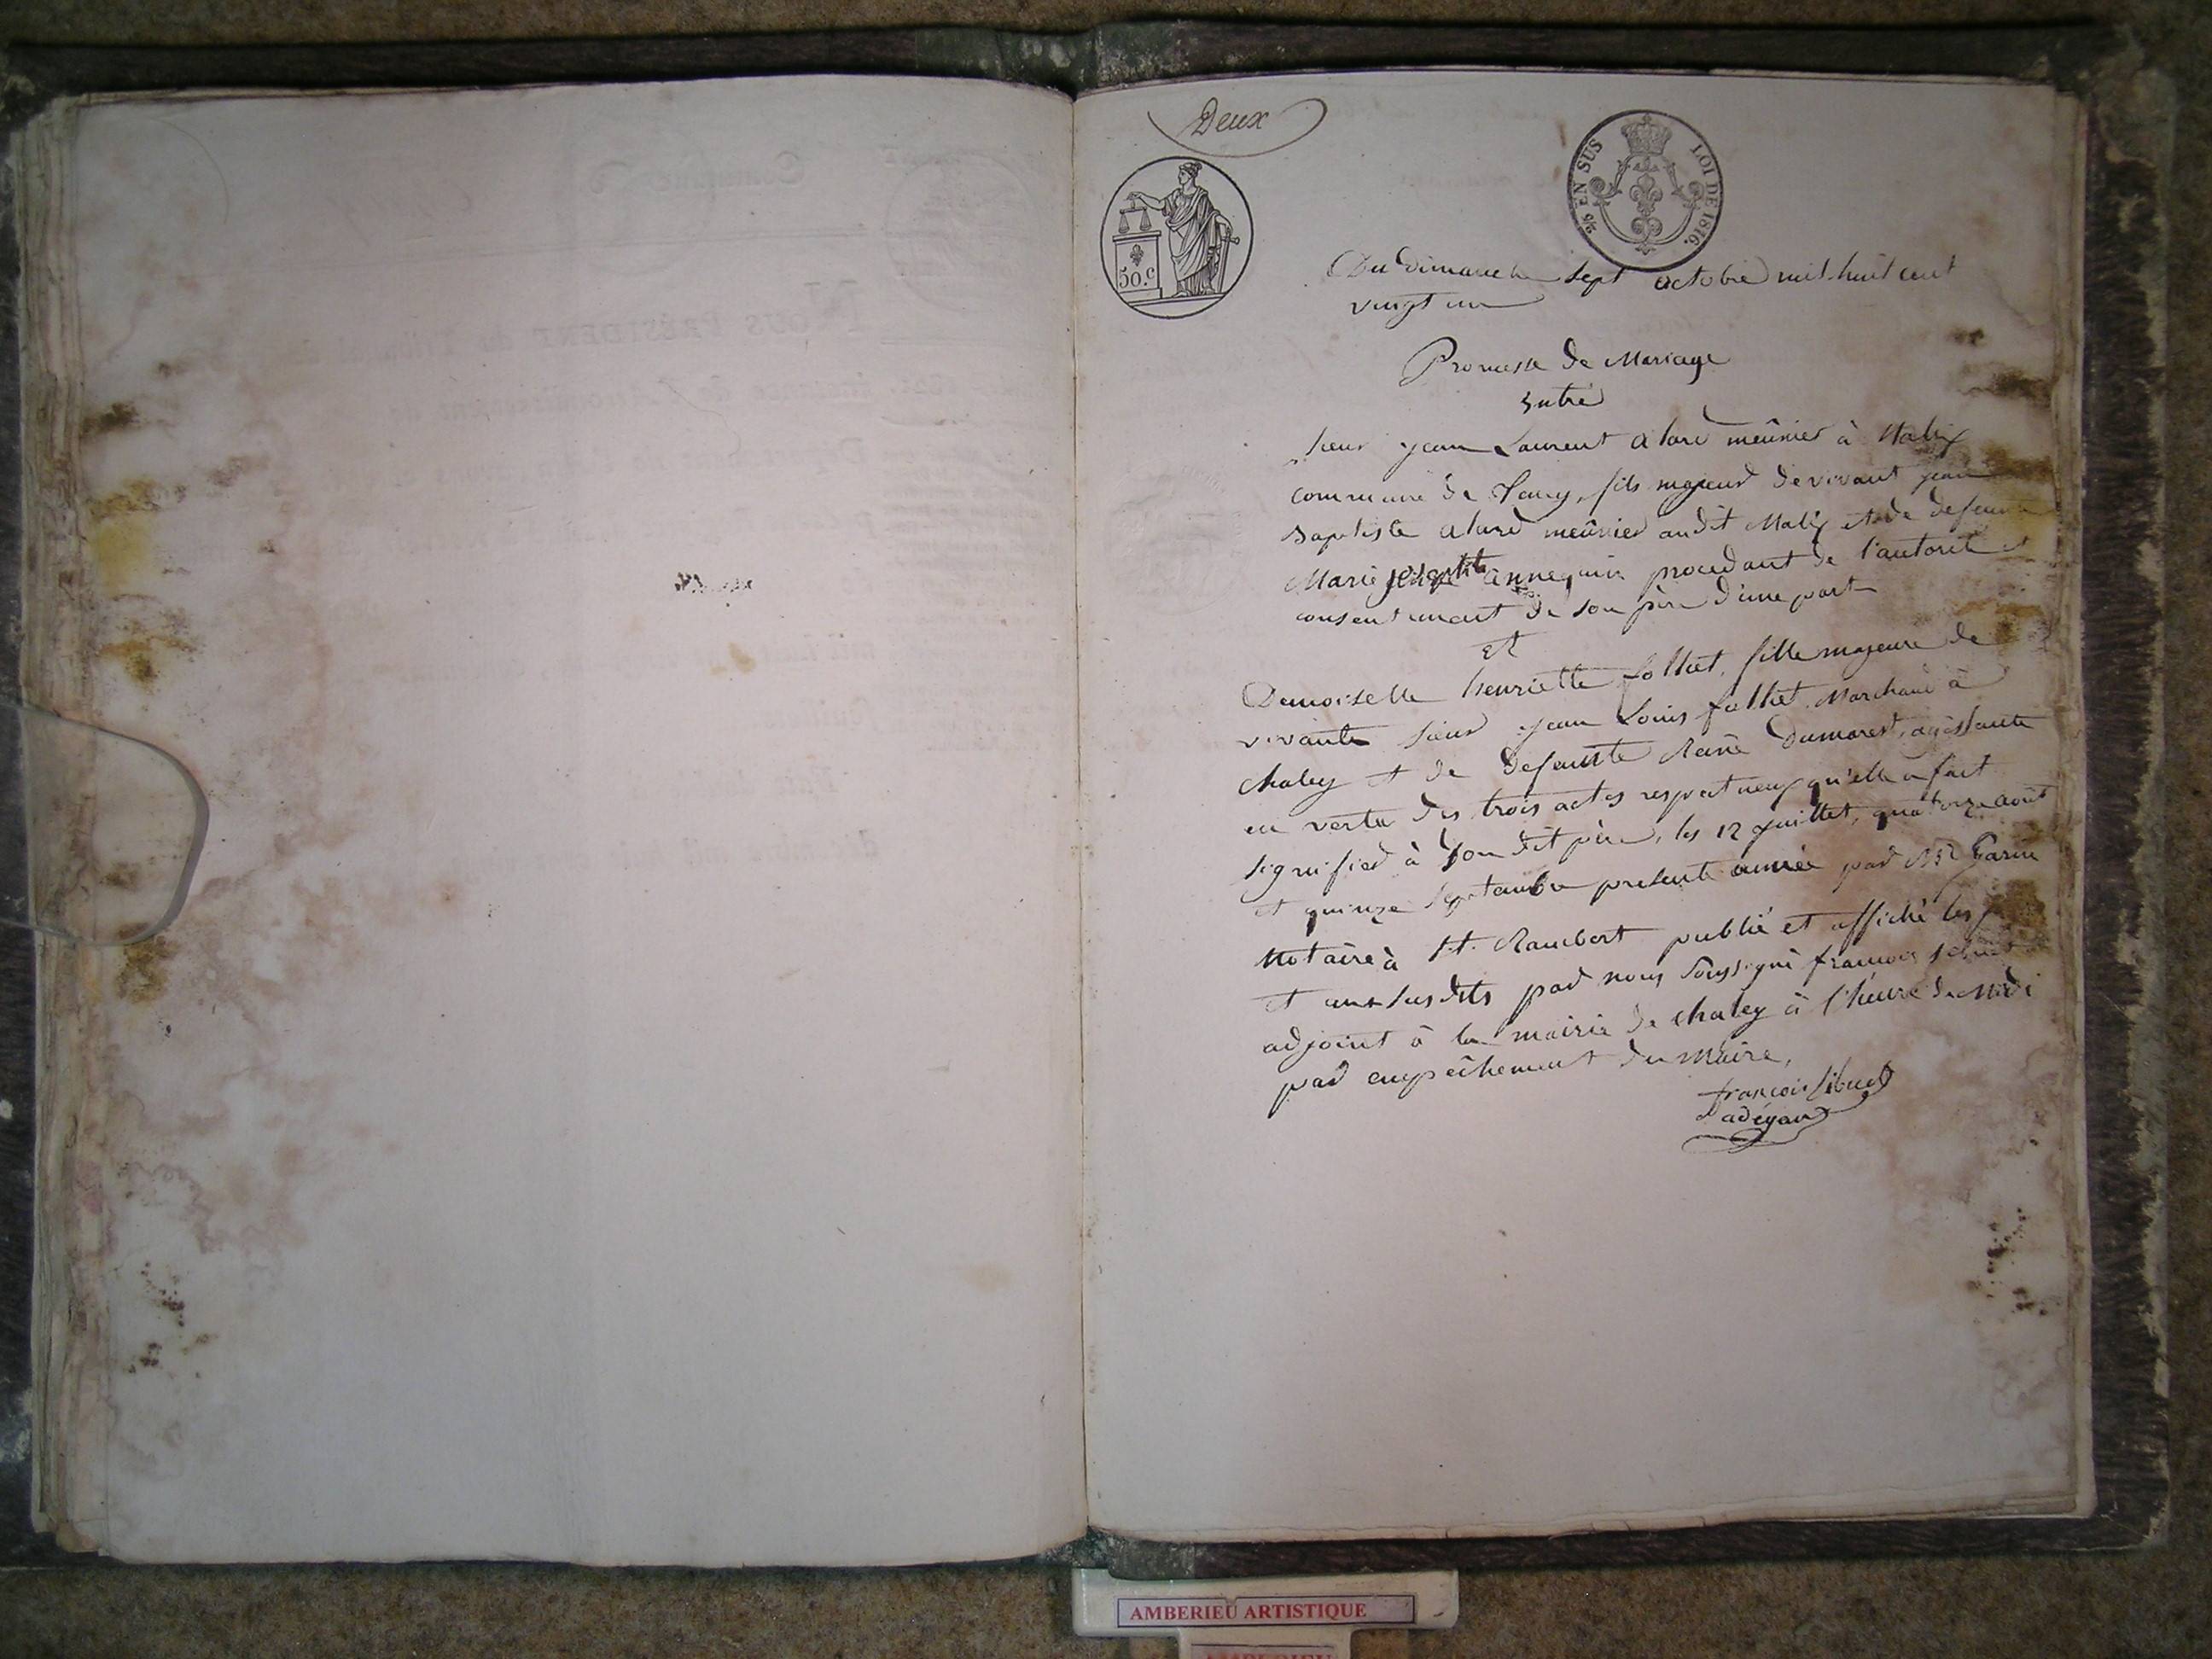 Deux
50.c
EN SUS
LOI DE 1816.
Du dimanche sept octobre mil huit cent
vingt un
Promesse de Mariage
Entre
sieur jean Laurent alard meûnier à
commune de fils majeur de vivant jean
Baptiste alard meûnier audit et de defunte
Marie procedant de l'autorité et
consentement de son père d'une part
et
Demoiselle henriette folliet, fille majeure de
vivante sieur jean Louis folliet Marchand à
chaley et de defunte Reine dumarest, agissante
en vertu des trois actes respectueux qu'elle a fait
signifier à son dit père, les 12 juillet, quatorze août
et quinze septembre presente année par Garin
Notaire à St. Rambert publié et affiché les j
et an susdits par nous soussigné francois
adjoint à la mairie de chaley à l'heure de Midi
par empêchement du Maire,
francois
AMBERIEU ARTISTIQUE
AMBERIEU